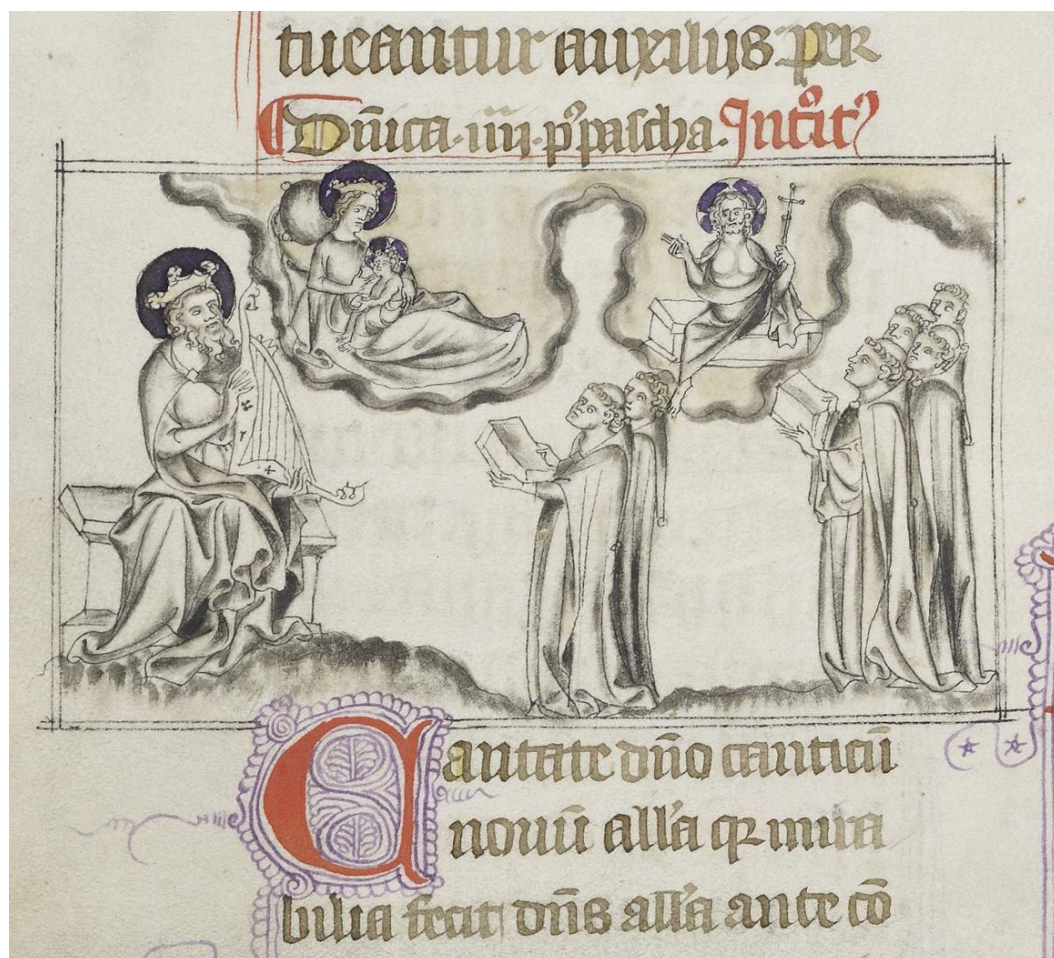 tueantur auxiliis per
Dn̄ica · iiij · p᷒ pascha · Introit᷒
Cantate dn̄o canticū
nouū all'a qꝛ mira
bilia fecit dn̄s all'a ante cō